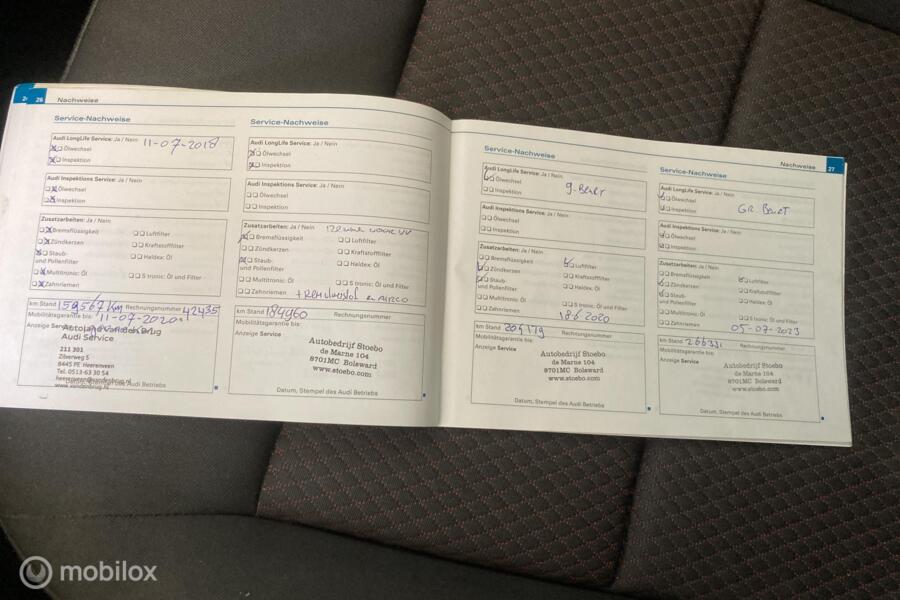 26 Nachweise
Service-Nachweise
Audi LongLife Service: Ja / Nein 11-07-2018
Ölwechsel
Inspektion
Audi Inspektions Service: Ja / Nein
Ölwechsel
Inspektion
Zusatzarbeiten: Ja / Nein
Bremsflüssigkeit Luftfilter
Zündkerzen Kraftstofffilter
Staub- Haldex: Öl
und Pollenfilter
Multitronic: Öl S tronic: Öl und Filter
Zahnriemen
km Stand 159567 km Rechnungsnummer 42435
Mobilitätsgarantie bis: 11-07-2020
Anzeige Service
Autoland van den Brug
Audi Service
211 301
Ziberweg 5
8445 PE Heerenveen
Tel. 0513-63 30 54
heerenveen@vandenbrug.nl
www.vandenbrug.nl
Datum, Stempel des Audi Betriebs
Service-Nachweise
Audi LongLife Service: Ja / Nein
Ölwechsel
Inspektion
Audi Inspektions Service: Ja / Nein
Ölwechsel
Inspektion
Zusatzarbeiten: Ja / Nein
Bremsflüssigkeit Luftfilter
Zündkerzen Kraftstofffilter
Staub- Haldex: Öl
und Pollenfilter
Multitronic: Öl S tronic: Öl und Filter
Zahnriemen
km Stand 184960 Rechnungsnummer
Mobilitätsgarantie bis:
Anzeige Service
Autobedrijf Stoebo
de Marne 104
8701MC Bolsward
www.stoebo.com
Datum, Stempel des Audi Betriebs
Service-Nachweise
Audi LongLife Service: Ja / Nein
Ölwechsel
Inspektion
Audi Inspektions Service: Ja / Nein
Ölwechsel
Inspektion
Zusatzarbeiten: Ja / Nein
Bremsflüssigkeit Luftfilter
Zündkerzen Kraftstofffilter
Staub- Haldex: Öl
und Pollenfilter
Multitronic: Öl S tronic: Öl und Filter
Zahnriemen 18-6 2020
km Stand Rechnungsnummer
Mobilitätsgarantie bis:
Anzeige Service
Autobedrijf Stoebo
de Marne 104
8701MC Bolsward
www.stoebo.com
Datum, Stempel des Audi Betriebs
Nachweise 27
Service-Nachweise
Audi LongLife Service: Ja / Nein
Ölwechsel
Inspektion
Audi Inspektions Service: Ja / Nein
Ölwechsel
Inspektion
Zusatzarbeiten: Ja / Nein
Bremsflüssigkeit Luftfilter
Zündkerzen Kraftstofffilter
Staub- Haldex: Öl
und Pollenfilter
Multitronic: Öl S tronic: Öl und Filter
Zahnriemen 05-07-2023
km Stand 266331 Rechnungsnummer
Mobilitätsgarantie bis:
Anzeige Service
Autobedrijf Stoebo
de Marne 104
8701MC Bolsward
www.stoebo.com
Datum, Stempel des Audi Betriebs
mobilox